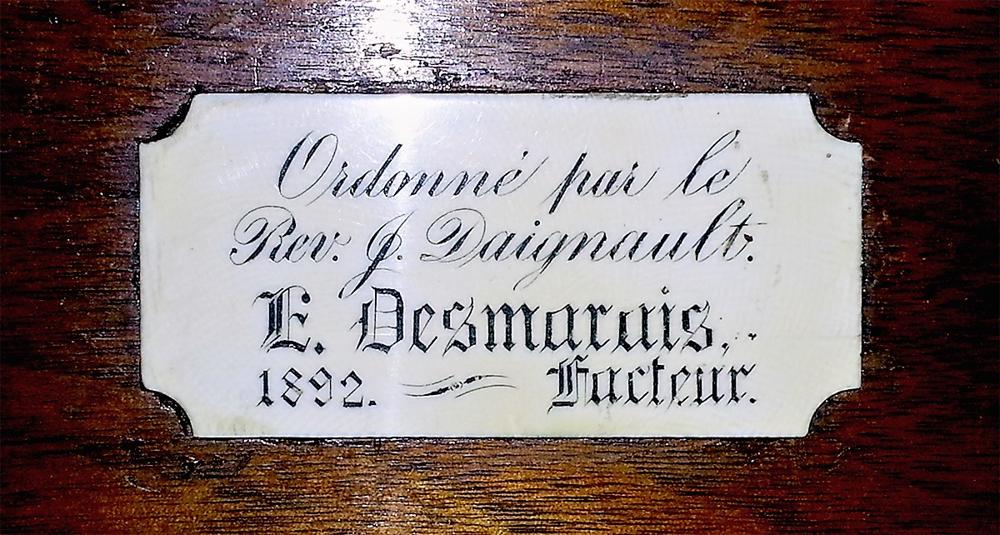 Ordonné par le
Rev. J. Daignault.
E. Desmarais,
1892. Facteur.